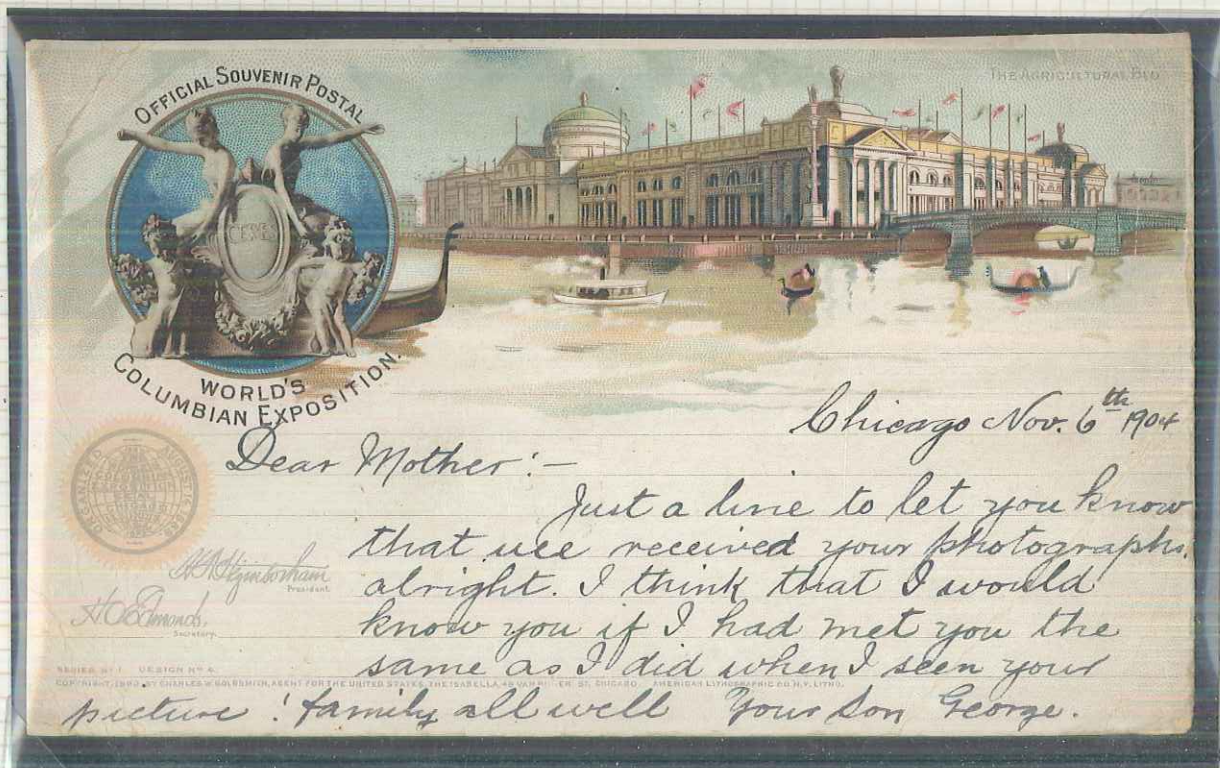 OFFICIAL SOUVENIR POSTAL
THE AGRICULTURAL BLD
CERES
WORLD'S
COLUMBIAN EXPOSITION.
Chicago Nov. 6th 1904
Dear Mother:-
Just a line to let you know
that we received your photographs.
alright. I think that I would
know you if I had met you the
same as I did when I seen your
picture! family all well Your Son George.
President.
Secretary.
SERIES Nº 1 DESIGN Nº 4.
COPYRIGHT, BY CHARLES W. GOLDSMITH, AGENT FOR THE UNITED STATES, THE ISABELLA, 48 ST. CHICAGO. AMERICAN LITHOGRAPHIC CO. N.Y. LITHO.